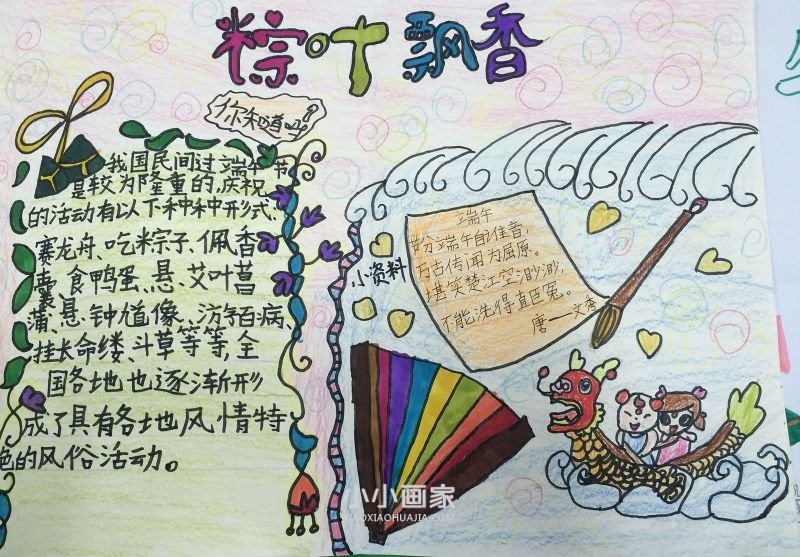 粽叶飘香
你知道吗
我国民间过端午节
是较为隆重的,庆祝
的活动有以下种种形式、
赛龙舟、吃粽子、佩香
囊、食鸭蛋、悬、艾叶菖
蒲、悬、钟馗像、游百病、
挂长命缕、斗草等等,全
国各地也逐渐形
成了具有各地风情特
色的风俗活动。
小资料
端午
节分端午自谁言,
万古传闻为屈原。
堪笑楚江空渺渺,
不能洗得直臣冤。
唐——文秀
小小画家
XIAOXIAOHUAJIA.COM